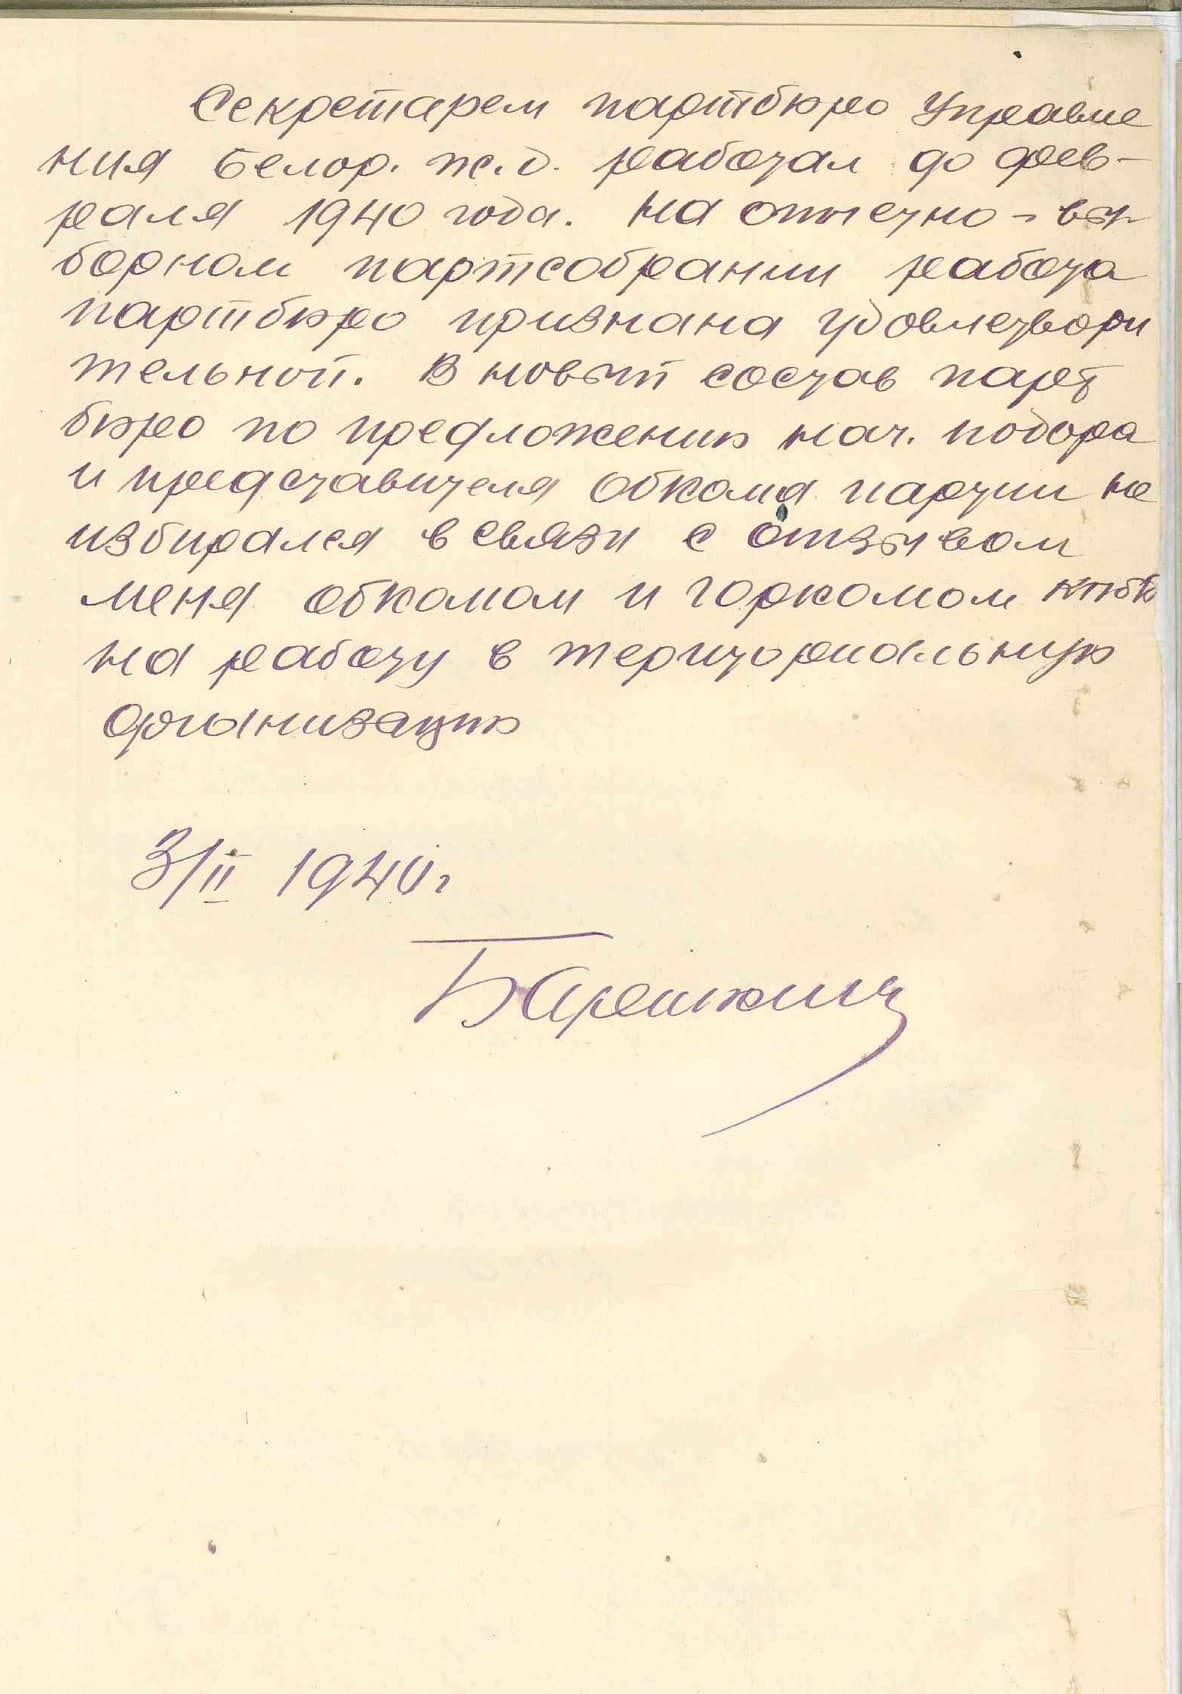 Секретарем партбюро Управле
ния Белор. ж.д. работал до фев-
раля 1940 года. На отчетно-вы-
борном партсобрании работа
партбюро признана удовлетвори
тельной. В новый состав парт
бюро по предложению нач.
и представителя обкома партии не
избирался в связи с отзывом
меня обкомом и горкомом КПбБ
на работу в териториальную
организацию
3/II 1940г